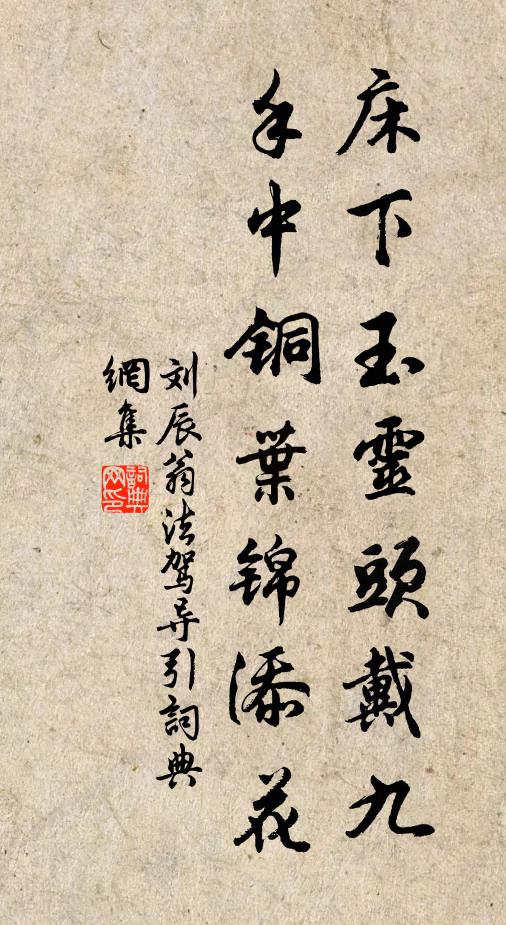 床下玉靈頭戴九
手中铜葉锦添花
刘辰翁法驾导引詞典
網集
詞典網印